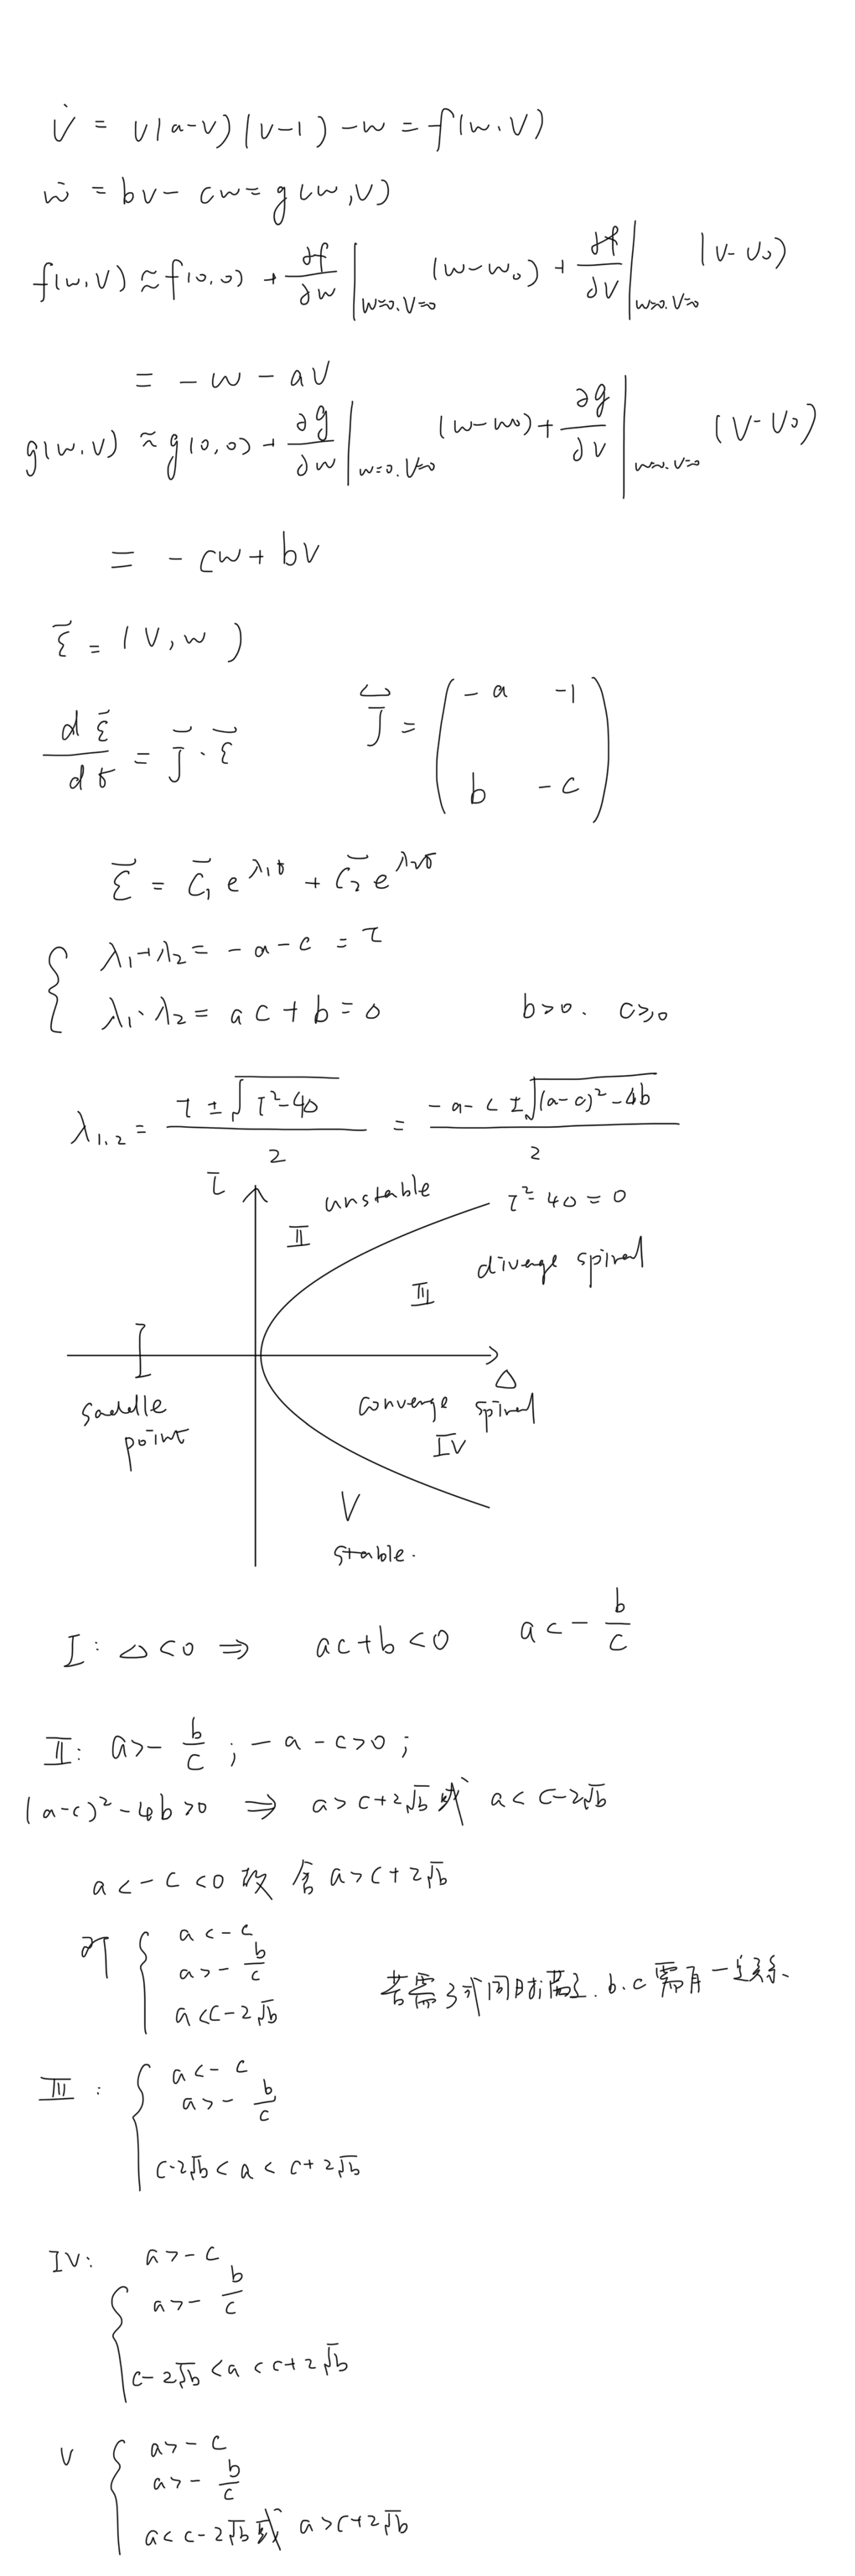 v̇ = v(a-v)(v-1) - w = f(w,v)
ẇ = bv - cw = g(w,v)
f(w,v) ≈ f(0,0) + ∂f/∂w |w=0,v=0 (w-w₀) + ∂f/∂v |w=0,v=0 (v-v₀)
= -w - av
g(w,v) ≈ g(0,0) + ∂g/∂w |w=0,v=0 (w-w₀) + ∂g/∂v |w=0,v=0 (v-v₀)
= -cw + bv
ε⃗ = (v,w)
dε⃗/dt = J⃗·ε⃗   J = (-a -1
b -c)
ε⃗ = C⃗₁e^λ₁t + C⃗₂e^λ₂t
λ₁+λ₂ = -a-c = τ
λ₁·λ₂ = ac+b = Δ   b>0. c≥0
λ₁,₂ = (τ±√(τ²-4Δ))/2 = (-a-c±√((a-c)²-4b))/2
τ
unstable
τ²-4Δ=0
II
diverge spiral
III
I
Δ
saddle point
converge spiral
IV
V
stable.
I: Δ<0 ⇒ ac+b<0   a<-b/c
II: a>-b/c ; -a-c>0 ;
(a-c)²-4b>0 ⇒ a>c+2√b 或 a<c-2√b
a<-c<0 故 舍 a>c+2√b
即 { a<-c
a>-b/c
a<c-2√b
若需3式同时满足. b.c需有一定关系.
III: { a<-c
a>-b/c
c-2√b<a<c+2√b
IV: a>-c
{ a>-b/c
c-2√b<a<c+2√b
V { a>-c
a>-b/c
a<c-2√b 或 a>c+2√b